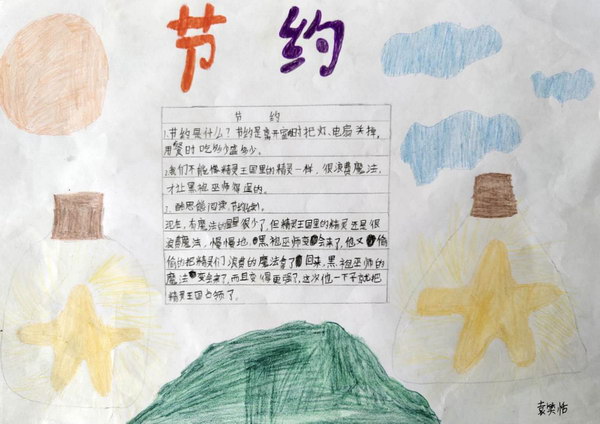 节约
节 约
1.节约是什么?节约是离开家时把灯、电扇关掉,
用餐时吃多少盛多少。
2.我们不能像精灵王国里的精灵一样,很浪费魔法,
才让黑袍巫师得逞的。
3.
现在,有魔法的 很少了,但精灵王国里的精灵还是很
浪费魔法,慢慢地,黑袍巫师变 会来了,他又偷
偷的把精灵们浪费的魔法拿了回来,黑袍巫师的
魔法 变会来了,而且变得更强了,这次他一下子就把
精灵王国占领了。
袁